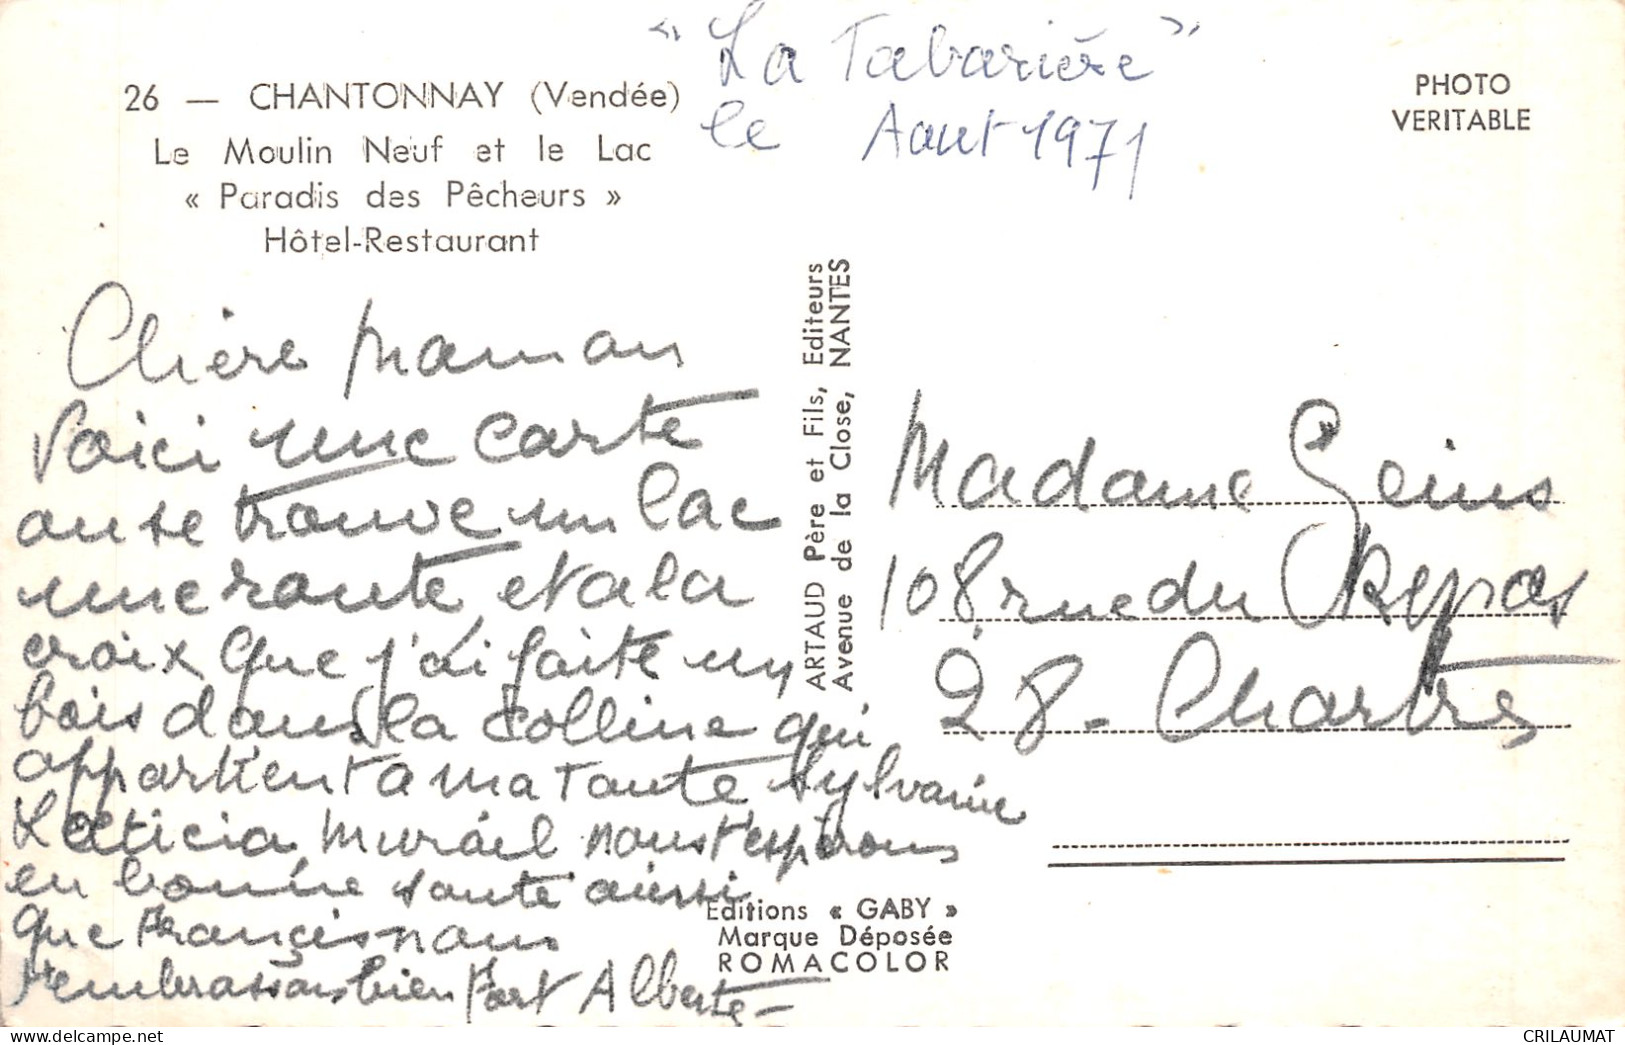 « La Tabarière »
le Aout 1971
26 — CHANTONNAY (Vendée)
Le Moulin Neuf et le Lac
« Paradis des Pêcheurs »
Hôtel-Restaurant
PHOTO
VERITABLE
Chère maman
Voici une carte
ou se trouve un lac
une route, et a la
croix que j'ai faite un
bois dans la colline qui
appartient a ma Tante Sylvaine
Laeticia Murael nous t'espérons
en bonne santé aussi
que François nous
t'embrassons bien fort Alberte -
ARTAUD Père et Fils, Editeurs
Avenue de la Close, NANTES
Madame Geins
108 rue du Repos
28 - Chartres
Editions « GABY »
Marque Déposée
ROMACOLOR
CRILAUMAT